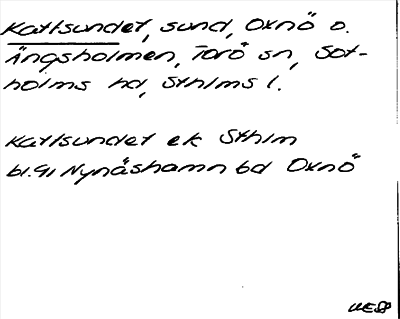 Kattsundet, sund, Oxnö o.
Ängsholmen, Torö sn, Sot-
holms hd, Sthlms l.
Kattsundet ek Sthlm
bl.91 Nynäshamn bd Oxnö